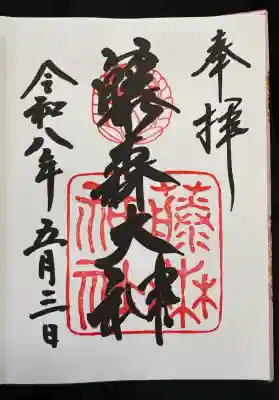 奉拝
藤森大神
藤森
神社
令和八年五月三日